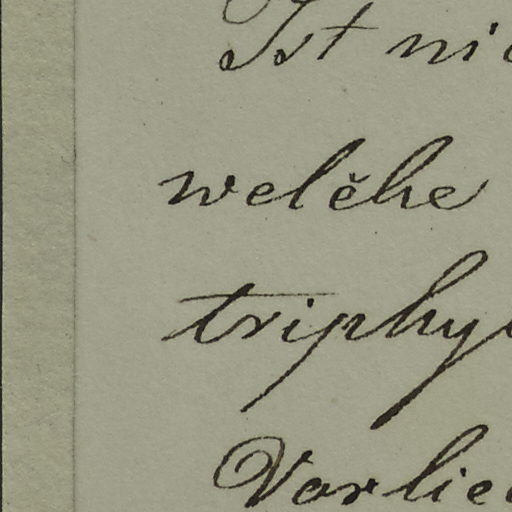 Ist ni
welche
triphy
Vorlie